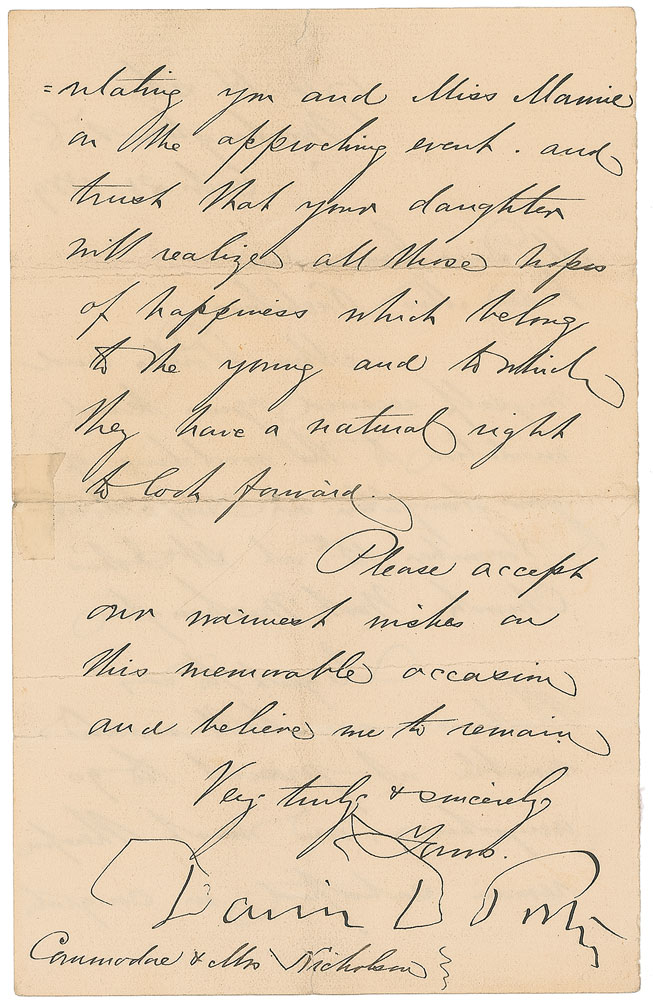 =ulating you and Miss Mamie
on the approching event. and
trust that your daughter
will realize all those hopes
of happiness which belong
to the young and to which
they have a natural right
to look forward.
Please accept
our warmest wishes on
this memorable occasion
and believe me to remain
Very truly & sincerely
Yours.
David D Porter
Commodore & Mrs Nicholson